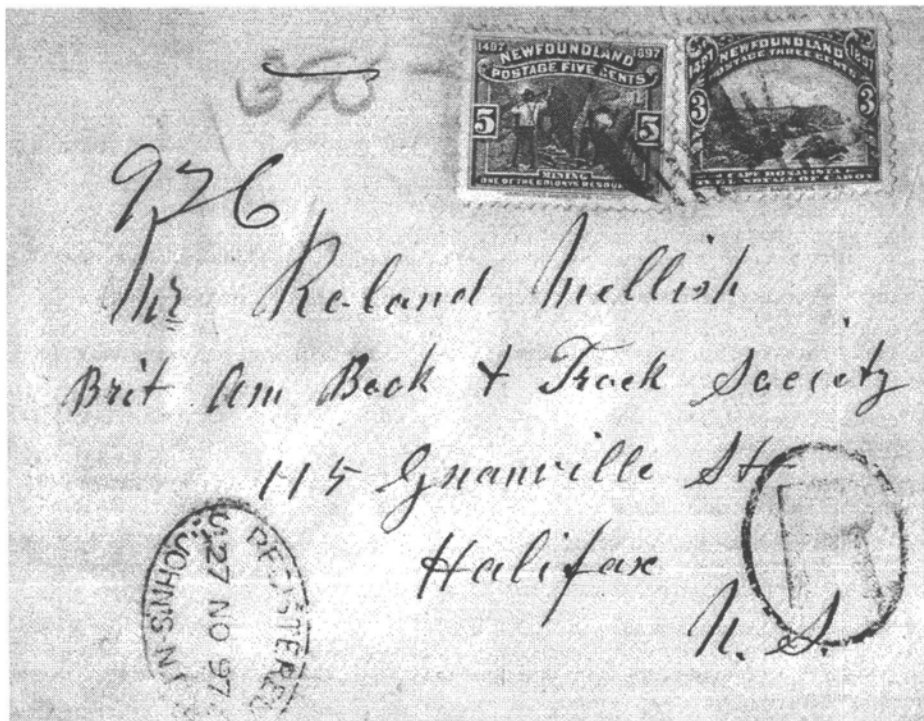 1497 NEWFOUNDLAND 1897
POSTAGE FIVE CENTS
5 5
MINING
ONE OF THE COLONYS
1497 NEWFOUNDLAND 1897
POSTAGE THREE CENTS
3 3
CAPE BONAVISTA
LANDFALL OF CABOT
926
Mr Roland Mellish
Brit Am Book + Track Society
115 Granville St
Halifax
N. S.
REGISTERED
27 NO 97
ST. JOHN'S N